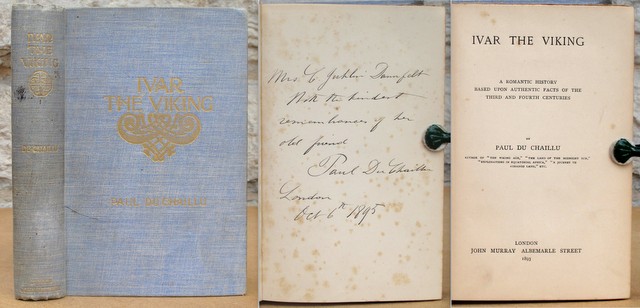 IVAR
THE
VIKING
DU CHAILLU
IVAR
THE VIKING
PAUL DU CHAILLU
Mrs. C
With the kindest
remembrances of her
old friend
Paul Du Chaillu
London
Oct 6th 1895
IVAR THE VIKING
A ROMANTIC HISTORY
BASED UPON AUTHENTIC FACTS OF THE
THIRD AND FOURTH CENTURIES
BY
PAUL DU CHAILLU
AUTHOR OF "THE VIKING AGE," "THE LAND OF THE MIDNIGHT SUN,"
"EXPLORATIONS IN EQUATORIAL AFRICA," "A JOURNEY TO
ASHANGO LAND," ETC.
LONDON
JOHN MURRAY ALBEMARLE STREET
1893